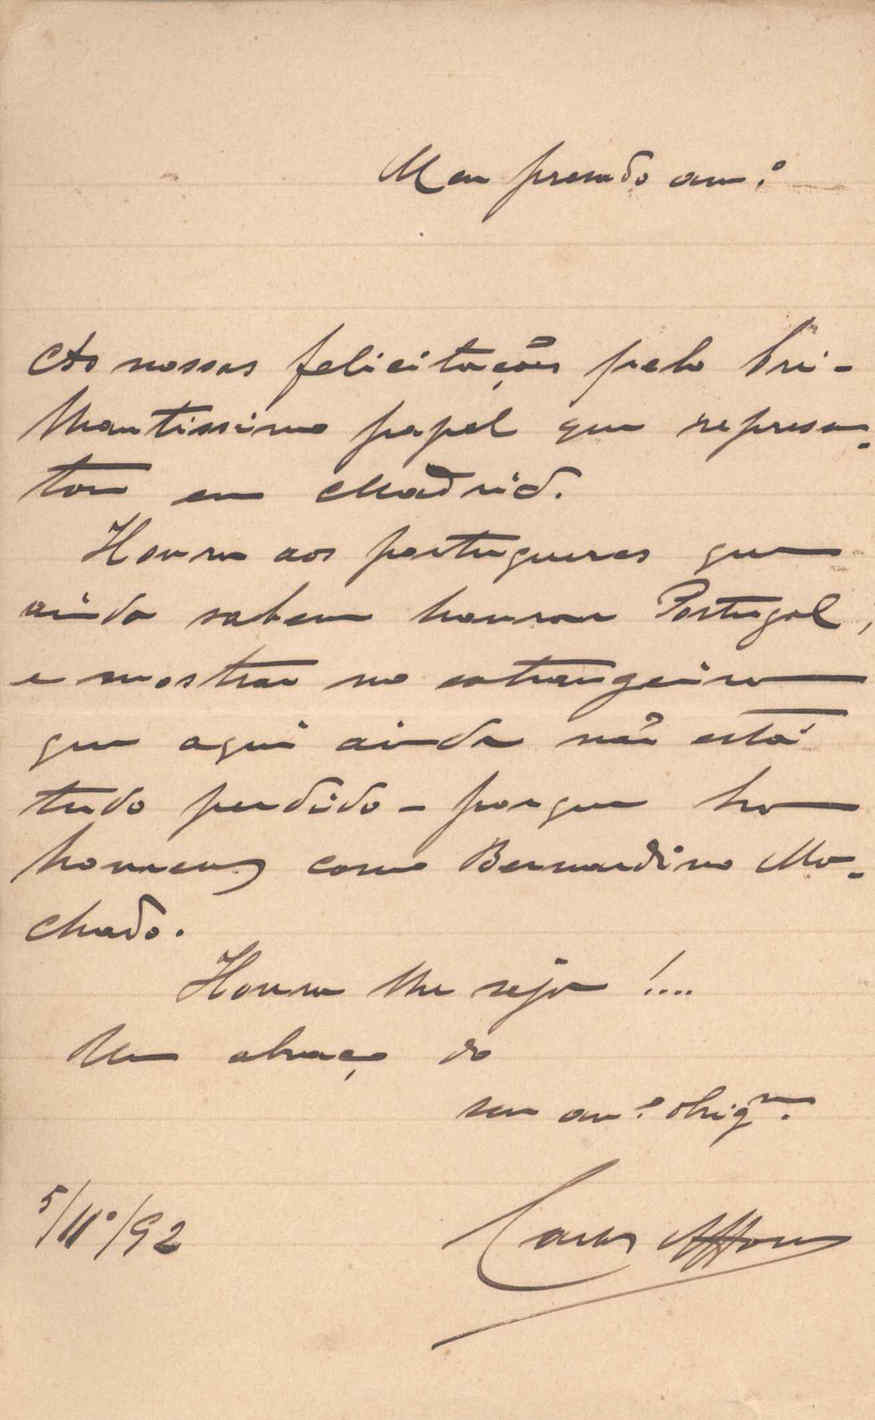 Meu presado am.º
As nossas felicitações pelo bri-
lhantissimo papel que represen-
tou em Madrid.
Honra aos portugueses que
ainda sabem honrar Portugal,
e mostrar no estrangeiro
que aqui ainda não está
tudo perdido – porque ha
homens como Bernardino Ma-
chado.
Honra lhe seja !....
Um abraço do
seu am.º obrig.mo
5/11º/92
Carlos Affonso